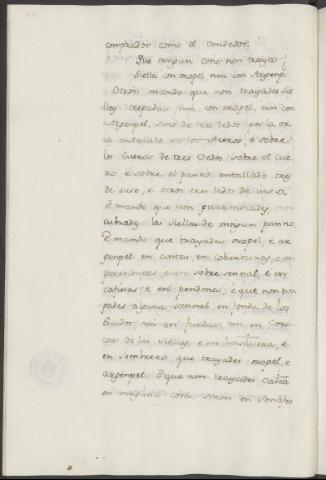 comprador como el Vendedor.
Que ningun Ome non traya
Siella con oropel, nin con Argenpel.
Otrosi mando que non trayades Sie
llas trepadas nin con oropel, nin con
Argenpel, sino de tres dedos por la or
la entallado los Aueros, è sobre
los cueros de tres dedos sobre el cue
ro, è sobre el panno entallado tres
de suso, e otros tres dedos de iuso.
E mando que non
cubrades las siellas de ningun panno.
E mando que trayades oropel, e ar
penpel en cintas, en coberturas, e en
perpuntes, e en sobre sennal, è en
cofieras, e en pendones; è que non pon
gades alguna sennal en fonda de los
Escudos, nin en fundas, nin en Coxe
ras de las siellas, e en
en Sombrero que trayades oropel, e
argenpel. E que non trayades
en ninguna cosa, sinon en Sonajes